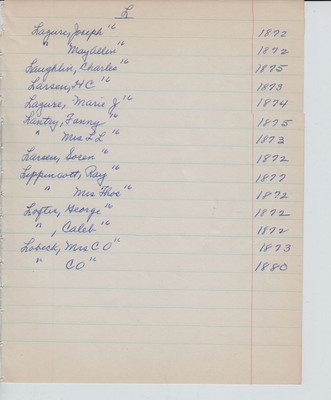 L
Lazure, Joseph "16 1872
" May Allen "16 1872
Laughlin, Charles "16 1875
Larsen, H C "16 1873
Lazure, Marie J "16 1874
Lantry, Fanny "16 1875
" Mrs L L "16 1873
Larsen, Soren "16 1872
Lippincott, Ray "16 1877
" Mrs Thos "16 1872
Lofter, George "16 1872
" , Caleb "16 1872
Lobeck, Mrs C O "16 1873
" C O "16 1880